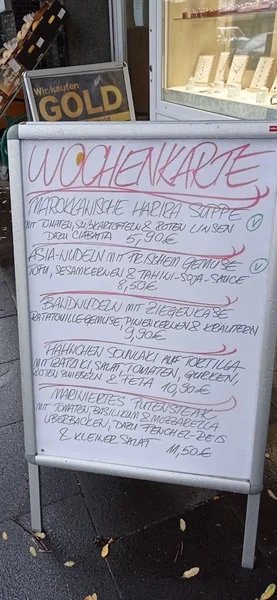 Wir kaufen
GOLD
WOCHENKARTE
MAROKKANISCHE HARIRA SUPPE
MIT TOMATEN, SÜßKARTOFFELN & ROTEN LINSEN
DAZU CIABATTA 5,90€
V
ASIA-NUDELN MIT FRISCHEM GEMÜSE
TOFU, SESAMKERNEN & TAHINI-SOJA-SAUCE
V
8,50€
BANDNUDELN MIT ZIEGENKÄSE
RATATOUILLEGEMÜSE, PINIENKERNEN & KRÄUTERN
9,90€
HÄHNCHEN SOUVLAKI AUF TORTILLA
MIT TZATZIKI, SALAT, TOMATEN, GURKEN,
ROTEN ZWIEBELN & FETA 10,90€
MARINIERTES PUTENSTEAK
MIT TOMATEN, BASILIKUM & MOZZARELLA
ÜBERBACKEN, DAZU FENCHEL-REIS
& KLEINER SALAT 11,50€